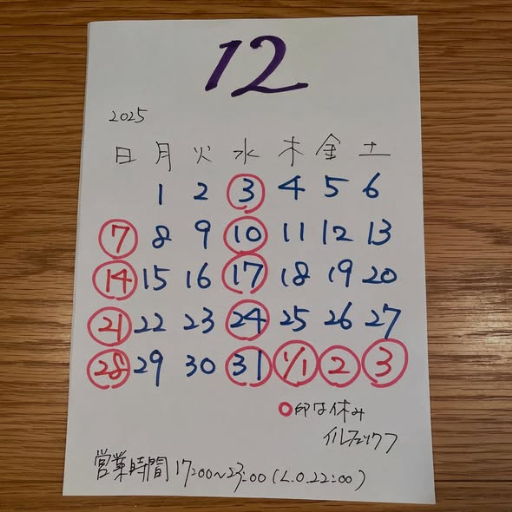 12
2025
日 月 火 水 木 金 土
1 2 3 4 5 6
7 8 9 10 11 12 13
14 15 16 17 18 19 20
21 22 23 24 25 26 27
28 29 30 31 1/1 2 3
○印は休み
営業時間 17:00~23:00(L.O.22:00)